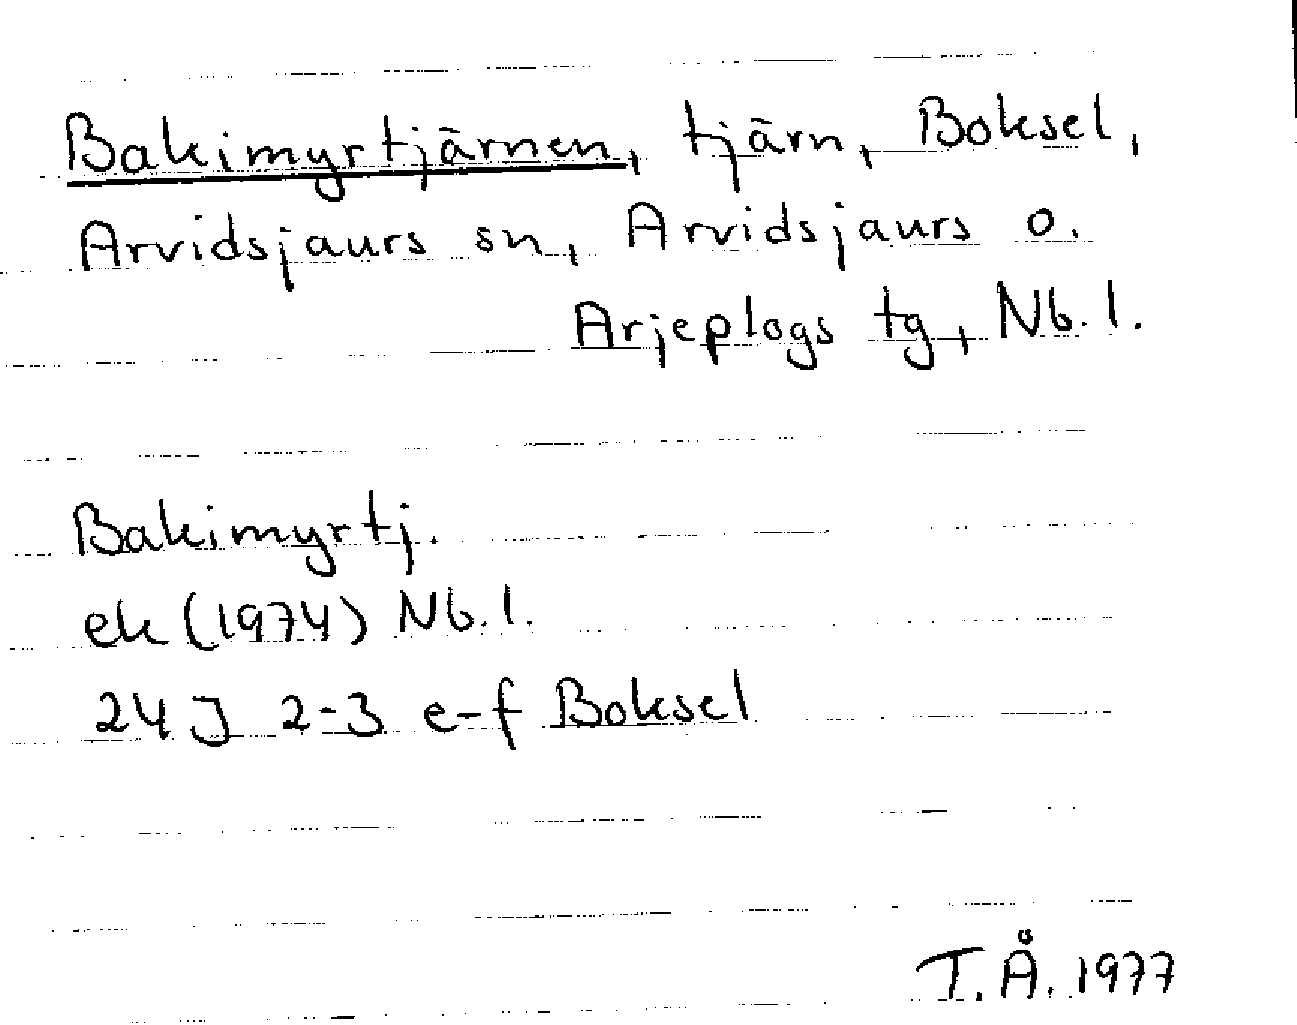 Bakimyrtjärnen, tjärn, Boksel,
Arvidsjaurs sn, Arvidsjaurs o.
Arjeplogs tg, Nb. l.
Bakimyrtj.
ek (1974) Nb. l.
24 J 2-3 e-f Boksel
T. Å. 1977